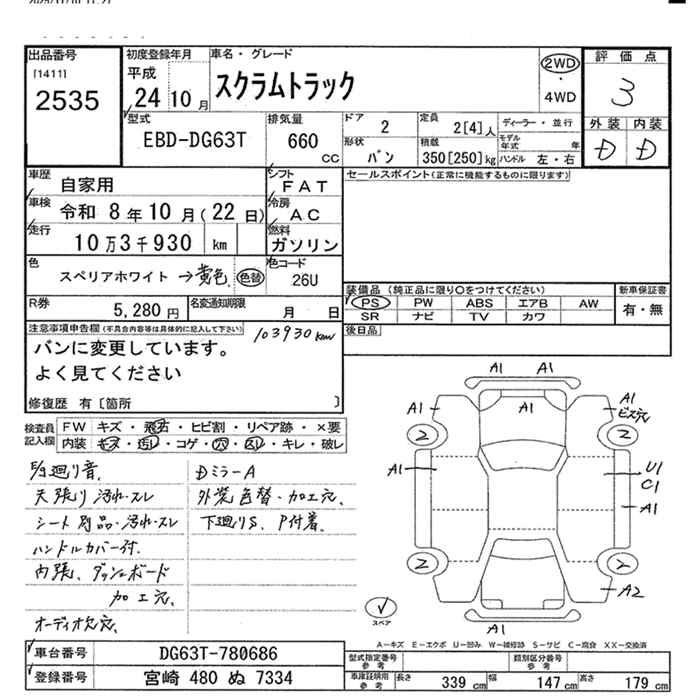 出品番号
[1411]
2535
初度登録年月
平成
24 10 月
車名・グレード
スクラムトラック
2WD
・
4WD
評価点
3
外装 内装
D D
型式
EBD-DG63T
排気量
660 CC
ドア 2
形状 バン
定員 2[4]人
積載 350[250]kg
ディーラー・並行
モデル年式 年
ハンドル 左・右
車歴 自家用
車検 令和 8年10月(22日)
走行 10万3千930 km
シフト FAT
冷房 AC
燃料 ガソリン
セールスポイント(正常に機能するものに限ります)
色 スペリアホワイト→黄色 色替
色コード 26U
R券 5,280 円
名変通知期限 月 日
装備品 (純正品に限り○をつけてください)
PS PW ABS エアB AW
SR ナビ TV カワ
新車保証書
有・無
後日品
注意事項申告欄(不具合内容等は具体的に記入して下さい)
103930km
バンに変更しています。
よく見てください
修復歴 有[箇所 ]
検査員記入欄
FW キズ・飛石・ヒビ割・リペア跡・×要
内装 キズ・汚レ・コゲ・穴・スレ・キレ・破レ
廻り音.
天張り汚れ・スレ
シート別品・汚れ・スレ
ハンドルカバー付.
内張、ダッシュボード
加工穴.
オーディオ欠穴.
DミラーA
外装色替・加工穴.
下廻りS、P付着.
A1 A1
A1 A1 A1
ビス穴
2 2
A1 U1
C1
A1
2 2
A2
A1
スペア
A―キズ E―エクボ U―凹み W―補修跡 S―サビ C―腐食 XX―交換済
車台番号 DG63T-780686
登録番号 宮崎 480 ぬ 7334
型式指定番号 参考
類別区分番号 参考
車庫証明用 参考 長さ 339 cm 幅 147 cm 高さ 179 cm